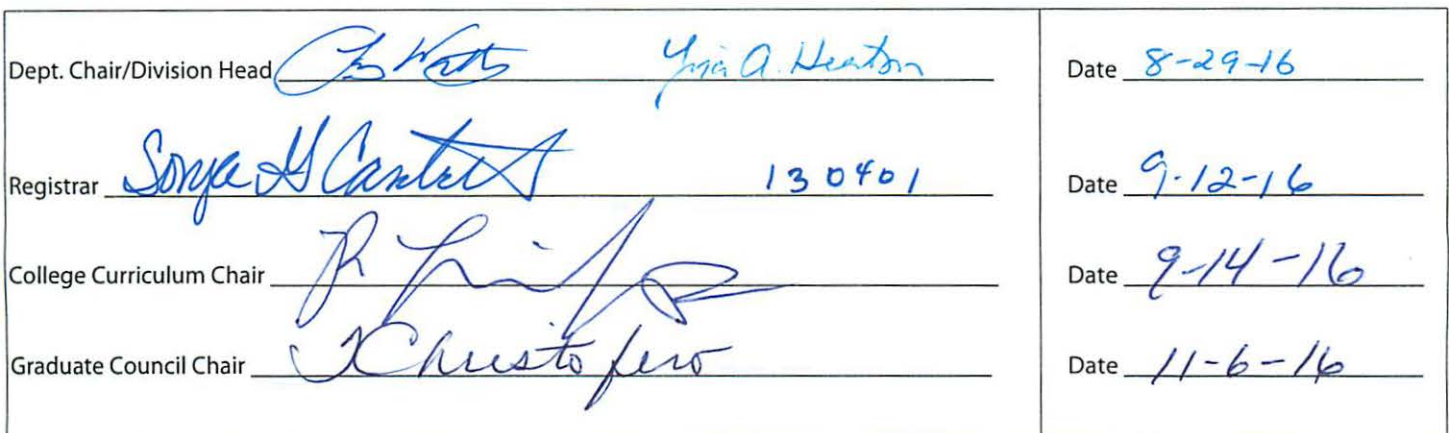 Dept. Chair/Division Head A. Heaton Date 8-29-16
Registrar Sonja G Cantrell 130401 Date 9-12-16
College Curriculum Chair Date 9-14-16
Graduate Council Chair T Christofero Date 11-6-16